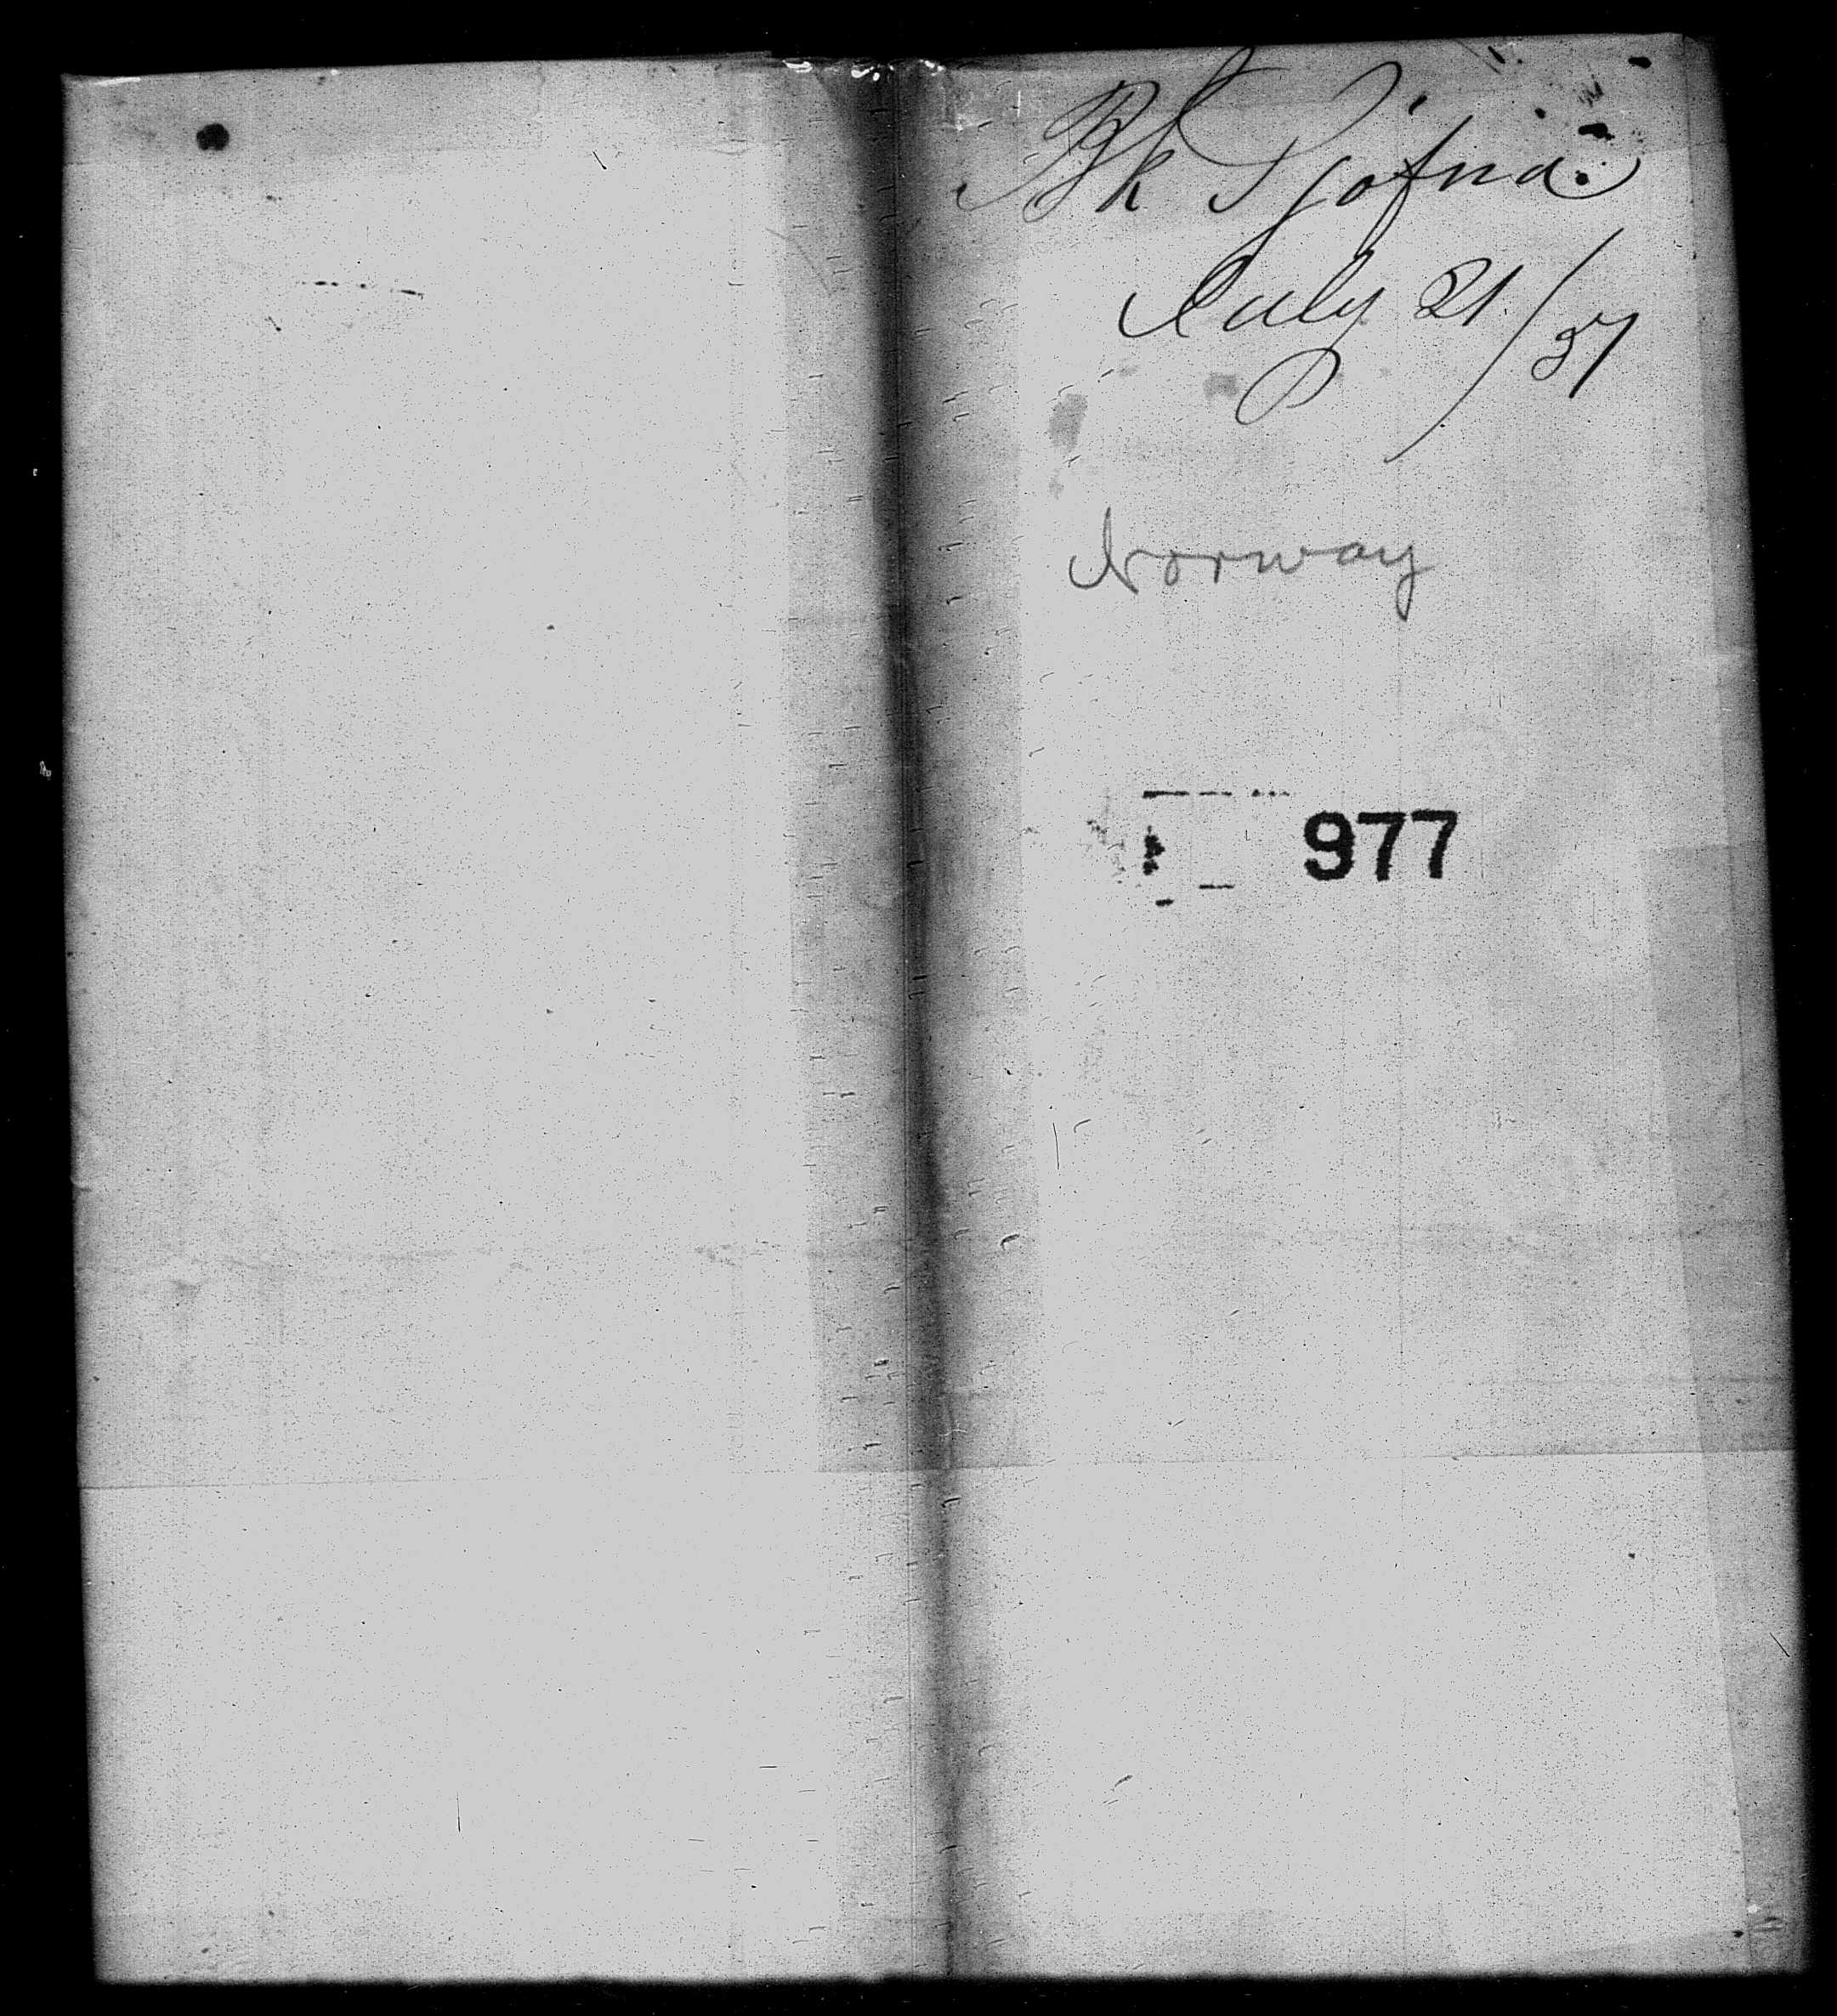 Bk Sjofna
July 21./57
Norway
977